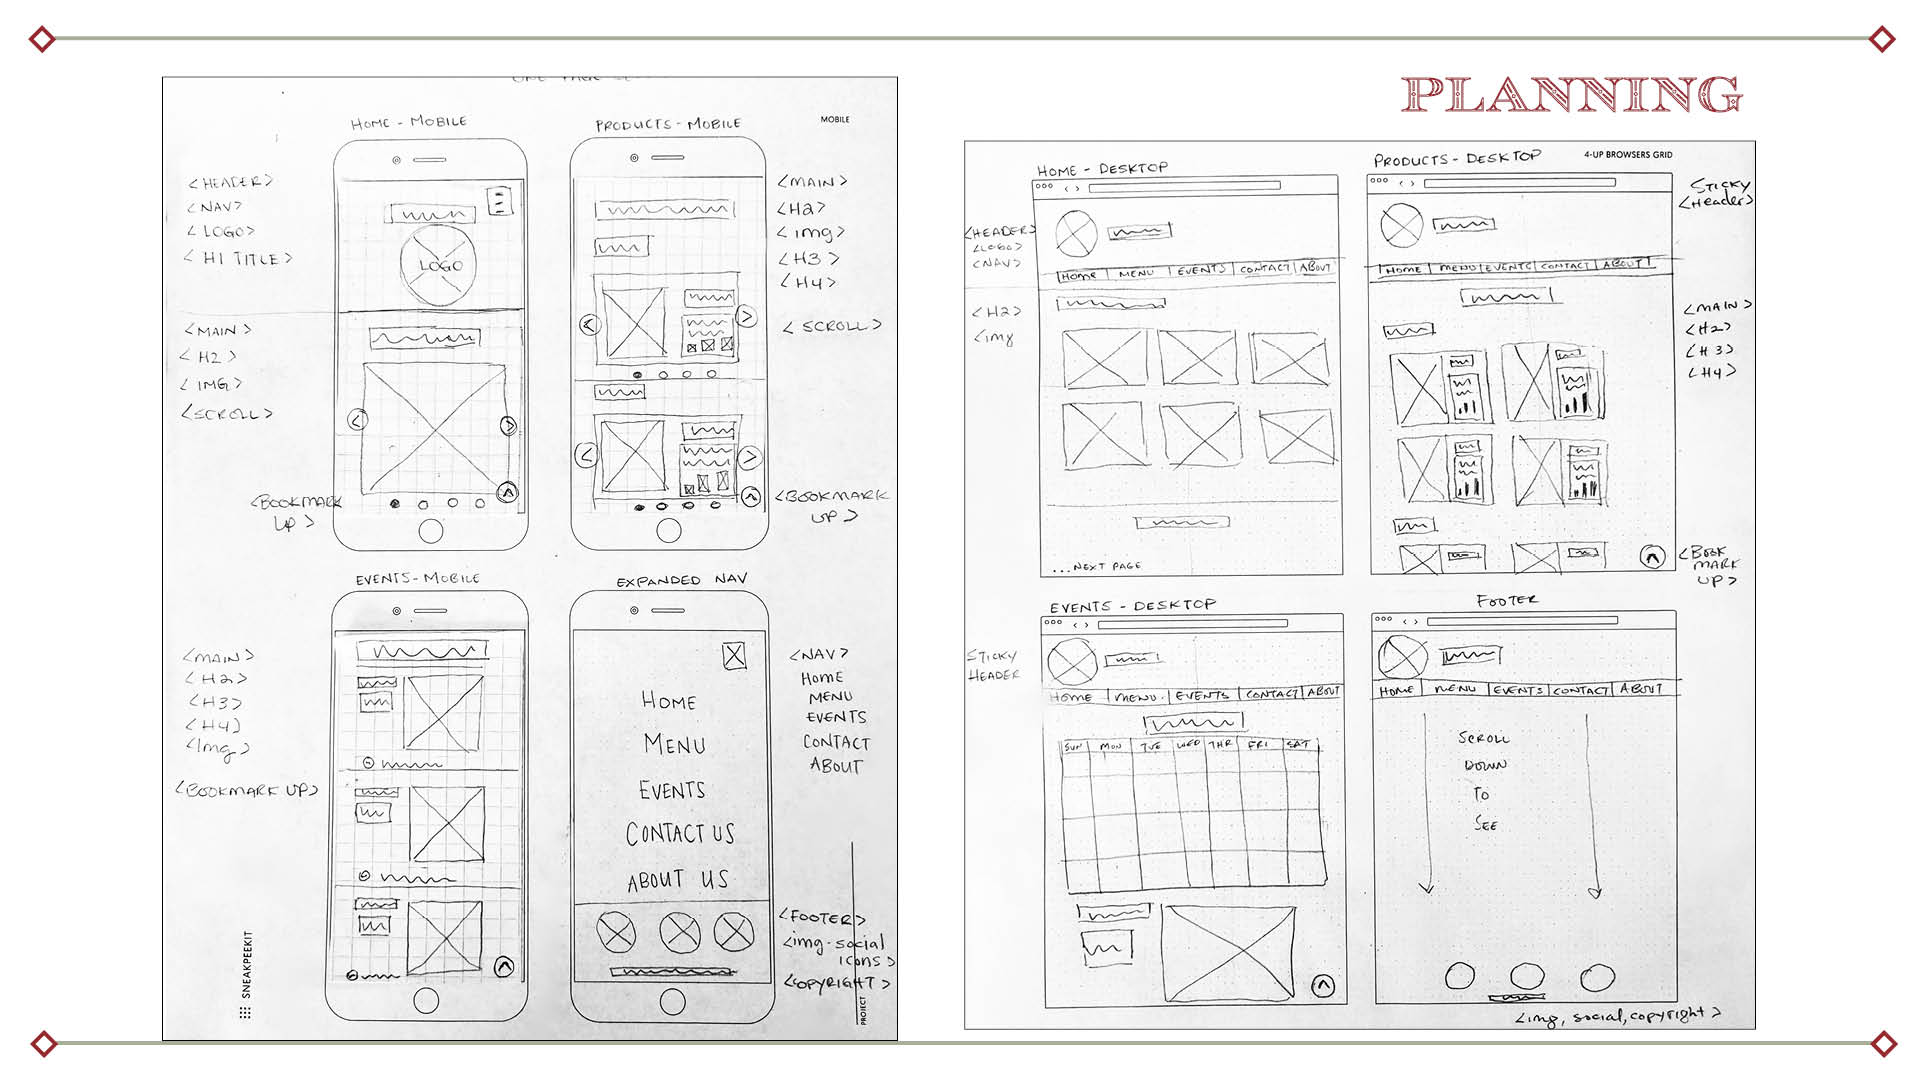 PLANNING
HOME - MOBILE
PRODUCTS - MOBILE
MOBILE
<HEADER>
<NAV>
<LOGO>
<H1 TITLE>
LOGO
<MAIN>
<H2>
<IMG>
<SCROLL>
<BOOKMARK
UP>
<MAIN>
<H2>
<img>
<H3>
<H4>
<SCROLL>
<BOOKMARK
UP>
EVENTS-MOBILE
EXPANDED NAV
<MAIN>
<H2>
<H3>
<H4>
<Img>
<BOOKMARK UP>
HOME
MENU
EVENTS
CONTACT US
ABOUT US
<NAV>
HOME
MENU
EVENTS
CONTACT
ABOUT
<FOOTER>
<img-social
icons>
<COPYRIGHT>
SNEAKPEEKIT
PROJECT
HOME - DESKTOP
PRODUCTS - DESKTOP
4-UP BROWSERS GRID
<HEADER>
<LOGO>
<NAV>
HOME MENU EVENTS CONTACT ABOUT
<H2>
<img
...NEXT PAGE
STICKY
<Header>
HOME MENU EVENTS CONTACT ABOUT
<MAIN>
<H2>
<H3>
<H4>
<BOOK
MARK
UP>
EVENTS - DESKTOP
FOOTER
STICKY
HEADER
HOME MENU EVENTS CONTACT ABOUT
SUN MON TUE WED THR FRI SAT
HOME MENU EVENTS CONTACT ABOUT
SCROLL
DOWN
TO
SEE
<img, social, copyright>